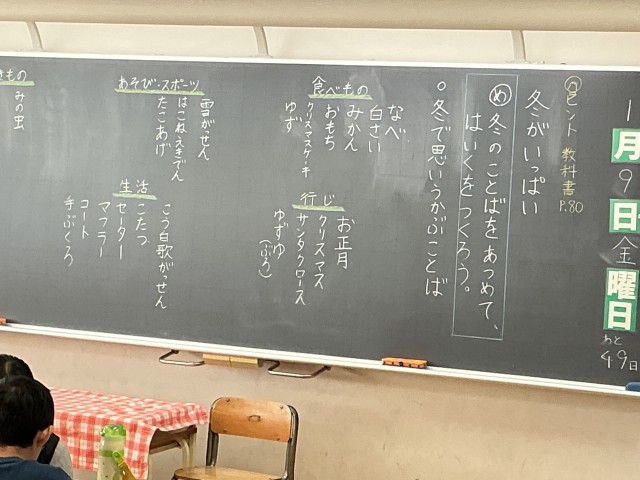 1月9日金曜日
あと49日
ヒント 教科書P.80
冬がいっぱい
め 冬のことばをあつめて、
はいくをつくろう。
○冬で思いうかぶことば
食べもの
なべ
白さい
みかん
おもち
クリスマスケーキ
ゆず
行じ
お正月
クリスマス
サンタクロース
ゆずゆ
(ふろ)
あそび・スポーツ
雪がっせん
はこねえきでん
たこあげ
生活
こう白歌がっせん
こたつ
セーター
マフラー
コート
手ぶくろ
きもの
みの虫